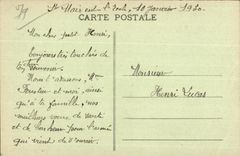 St Nair sur l. Loule, 10 Janvier 1920.
CARTE POSTALE
Mon cher petit Henri,
Toujours très touchés de
ton souvenir.
Nous t'adressons, Mme
et moi, ainsi
qu'à ta famille, nos
meilleurs vœux de santé
et de bonheur pour l'année
qui vient de s'ouvrir.
Monsieur
Henri Lucas